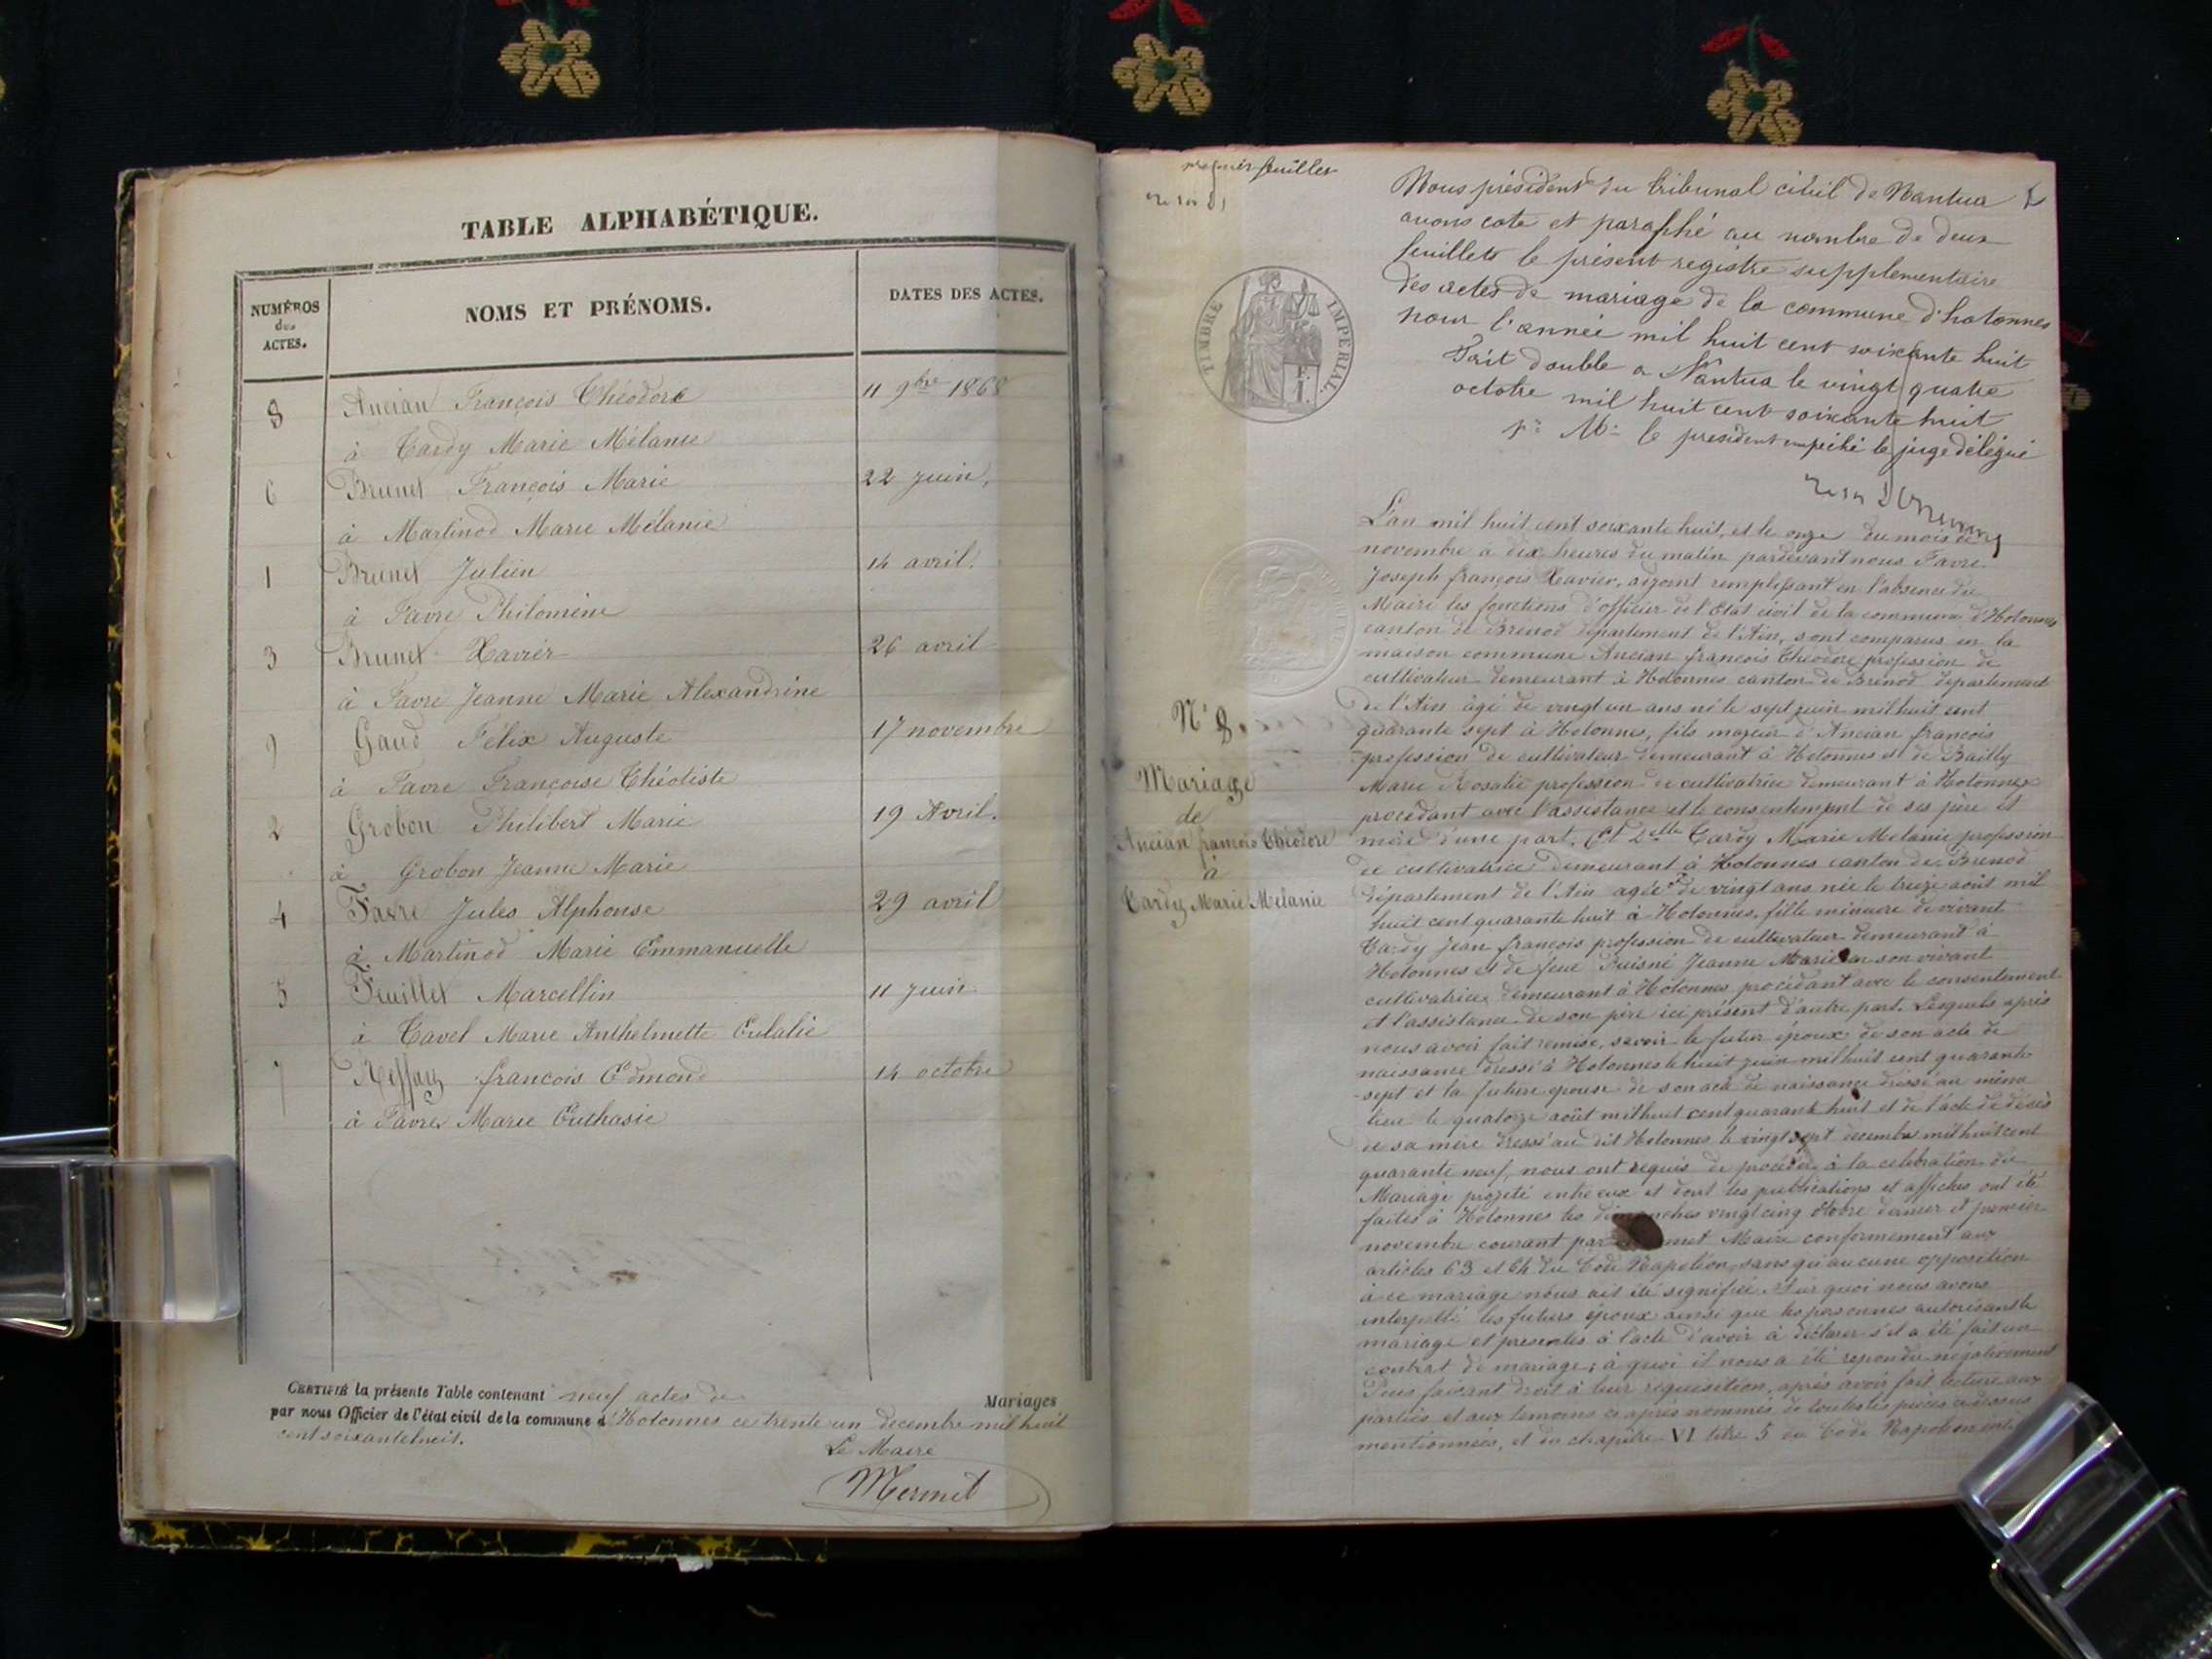 TABLE ALPHABÉTIQUE.
NUMÉROS
des
ACTES.
NOMS ET PRÉNOMS.
DATES DES ACTES.
8 Ancian François Théodore 11 9bre 1868
à Tardy Marie Mélanie
6 Brunet François Marie 22 juin.
à Martinod Marie Mélanie
1 Brunet Julien 14 avril.
à Favre Philomène
3 Brunet Xavier 26 avril
à Favre Jeanne Marie Alexandrine
9 Gaud Félix Auguste 17 novembre
à Favre Françoise Théotiste
2 Grobon Philibert Marie 19 Avril.
à Grobon Jeanne Marie
4 Favre Jules Alphonse 29 avril
à Martinod Marie Emmanuelle
5 Feuillet Marcellin 11 juin
à Tavel Marie Anthelmette Eulalie
7 françois Edmond 14 octobre
à Favre Marie Euthasie
CERTIFIÉ la présente Table contenant neuf actes de Mariages
par nous Officier de l'état civil de la commune d'Hotonnes ce trente un decembre mil huit
cent soixante huit.
Le Maire
Mermet
premier feuillet
Nous président du tribunal civil de Nantua
avons coté et paraphé au nombre de deux
feuillets le présent registre supplementaire
des actes de mariage de la commune d'hotonnes
pour l'année mil huit cent soixante huit
Fait double a Nantua le vingt quatre
octobre mil huit cent soixante huit
pr Mr le president empêché le juge délégué
TIMBRE IMPERIAL.
L'an mil huit cent soixante huit, et le onze du mois de
novembre à dix heures du matin pardevant nous Favre
Joseph françois Xavier, adjoint remplissant en l'absence du
Maire les fonctions d'officier de l'Etat civil de la commune d'Hotonnes
canton de Brenod département de l'Ain, sont comparus en la
maison commune Ancian françois Théodore profession de
cultivateur demeurant à Hotonnes canton de Brenod département
de l'Ain âgé de vingt un ans né le sept juin mil huit cent
quarante sept à Hotonnes, fils majeur d'Ancian françois
profession de cultivateur demeurant à Hotonnes et de Bailly
Marie Rosalie profession de cultivatrice demeurant à Hotonnes
procédant avec l'assistance et le consentement de ses père et
mère d'une part. Et Delle Tardy Marie Melanie profession
de cultivatrice demeurant à Hotonnes canton de Brenod
département de l'Ain agée de vingt ans née le treize août mil
huit cent quarante huit à Hotonnes, fille mineure de vivant
Tardy Jean françois profession de cultivateur demeurant à
Hotonnes et de feue Puisné Jeanne Marie en son vivant
cultivatrice demeurant à Hotonnes procédant avec le consentement
et l'assistance de son père ici présent d'autre part. Lesquels après
nous avoir fait remise, savoir le futur époux de son acte de
naissance dressé à Hotonnes le huit juin mil huit cent quarante
sept et la future epouse de son acte de naissance dressé au même
lieu le quatorze août mil huit cent quarante huit et de l'acte de décès
de sa mère dressé au dit Hotonnes le vingt sept decembre mil huit cent
quarante neuf, nous ont requis de procéder à la celebration du
Mariage projeté entre eux et dont les publications et affiches ont été
faites à Hotonnes les dimanches vingt cinq octobre dernier et premier
novembre courant par Mermet Maire conformement aux
articles 63 et 64 du Code Napoléon, sans qu'aucune opposition
à ce mariage nous ait été signifiée. Sur quoi nous avons
interpellé les futurs époux ainsi que les personnes autorisant le
mariage et presentes à l'acte d'avoir à déclarer s'il a été fait un
contrat de mariage; à quoi il nous a été repondu négativement
Puis faisant droit à leur requisition, après avoir fait lecture aux
parties et aux temoins ci après nommés de toutes les pièces ci dessus
mentionnées, et du chapitre VI titre 5 du Code Napoléon
N° 8.
Mariage
de
Ancian françois Théodore
à
Tardy Marie Melanie